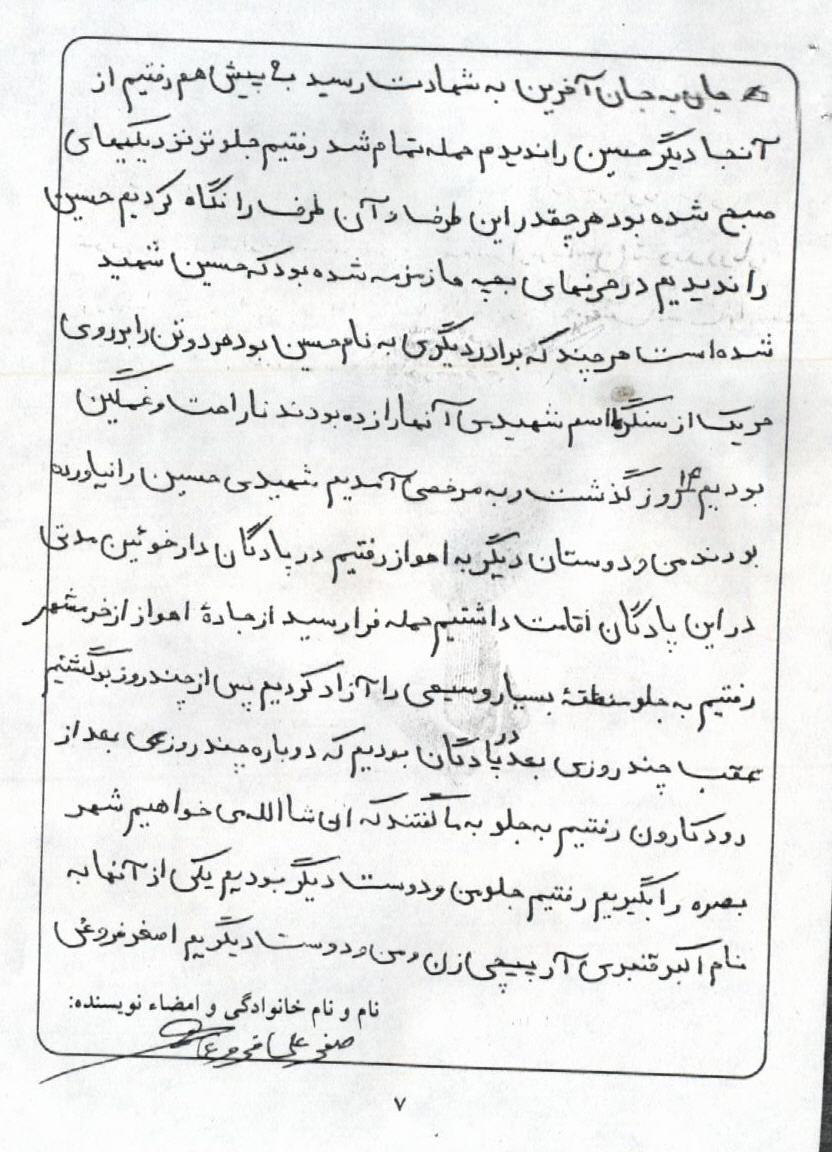 که جان به جان آفرین به شهادت رسید به پیش هم رفتیم از
آنجا دیگر حسین را ندیدم حمله تمام شد رفتیم جلوتر نزدیکیهای
صبح شده بود هر چقدر این طرف و آن طرف را نگاه کردیم حسین
را ندیدیم در حرفهای بچه ها زمزمه شده بود که حسین شهید
شده است هر چند که برادر دیگری به نام حسین بود هر دو تن را بر روی
هر یک از سنگرها اسم شهیدی آنها را زده بودند ناراحت و غمگین
بودیم ۱۴ روز گذشت و به مرخصی آمدیم شهیدی حسین را نیاورده
بودند من و دوستان دیگر به اهواز رفتیم در پادگان دارخوئین مدتی
در این پادگان اقامت داشتیم حمله فرا رسید از جادۀ اهواز از خرمشهر
رفتیم به جلو منطقۀ بسیار وسیعی را آزاد کردیم پس از چند روز برگشتیم
عقب چند روزی بعد در پادگان بودیم که دوباره چند روزی بعد از
رود کارون رفتیم به جلو به ما گفتند که ان شا الله می خواهیم شهر
بصره را بگیریم رفتیم جلو من و دوست دیگر بودیم یکی از آنها به
نام اکبر قنبری آر پیچی زن و من و دوست دیگریم اصغر فروغی
نام و نام خانوادگی و امضاء نویسنده:
صفر علی فروغی
۷